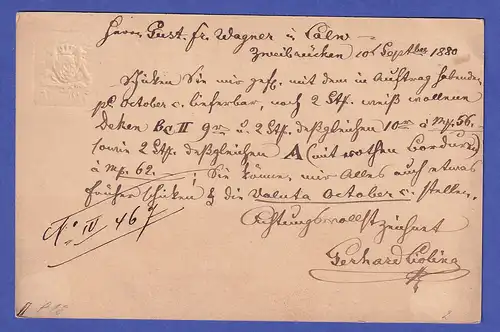 Herrn Gust. Fr. Wagner in Calw
Zweibrücken 10 Septber 1880
Schiken Sie mir gefl. mit dem in Auftrag habenden
pr October c. lieferbar, noch 2 Stk. weiß wollene
Deken B II 9/4 u. 2 Stk. deßgleichen 10/4 à M 56.
sowie 2 Stk. deßgleichen A (mit rothen Borduren)
à M 62. Sie können mir Alles auch etwas
früher schiken & die Valuta October c. stellen.
Achtungsvollst zeichnet
Gerhard
No IV 467